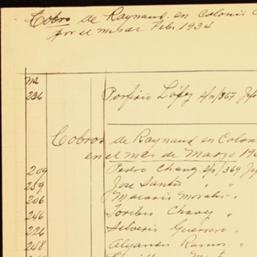 Cobro de Raynaud en Colonia
por el mes Feb. 1934
No.
236 Porfirio López
Cobros de Raynaud en Colon
en el mes de Marzo 19
209 Pedro Chang
259 Jose Santos "
206 Macario Morales "
246 Toribio Chavez "
226 Silverio Guerrero "
248 Alejandro Ramos "